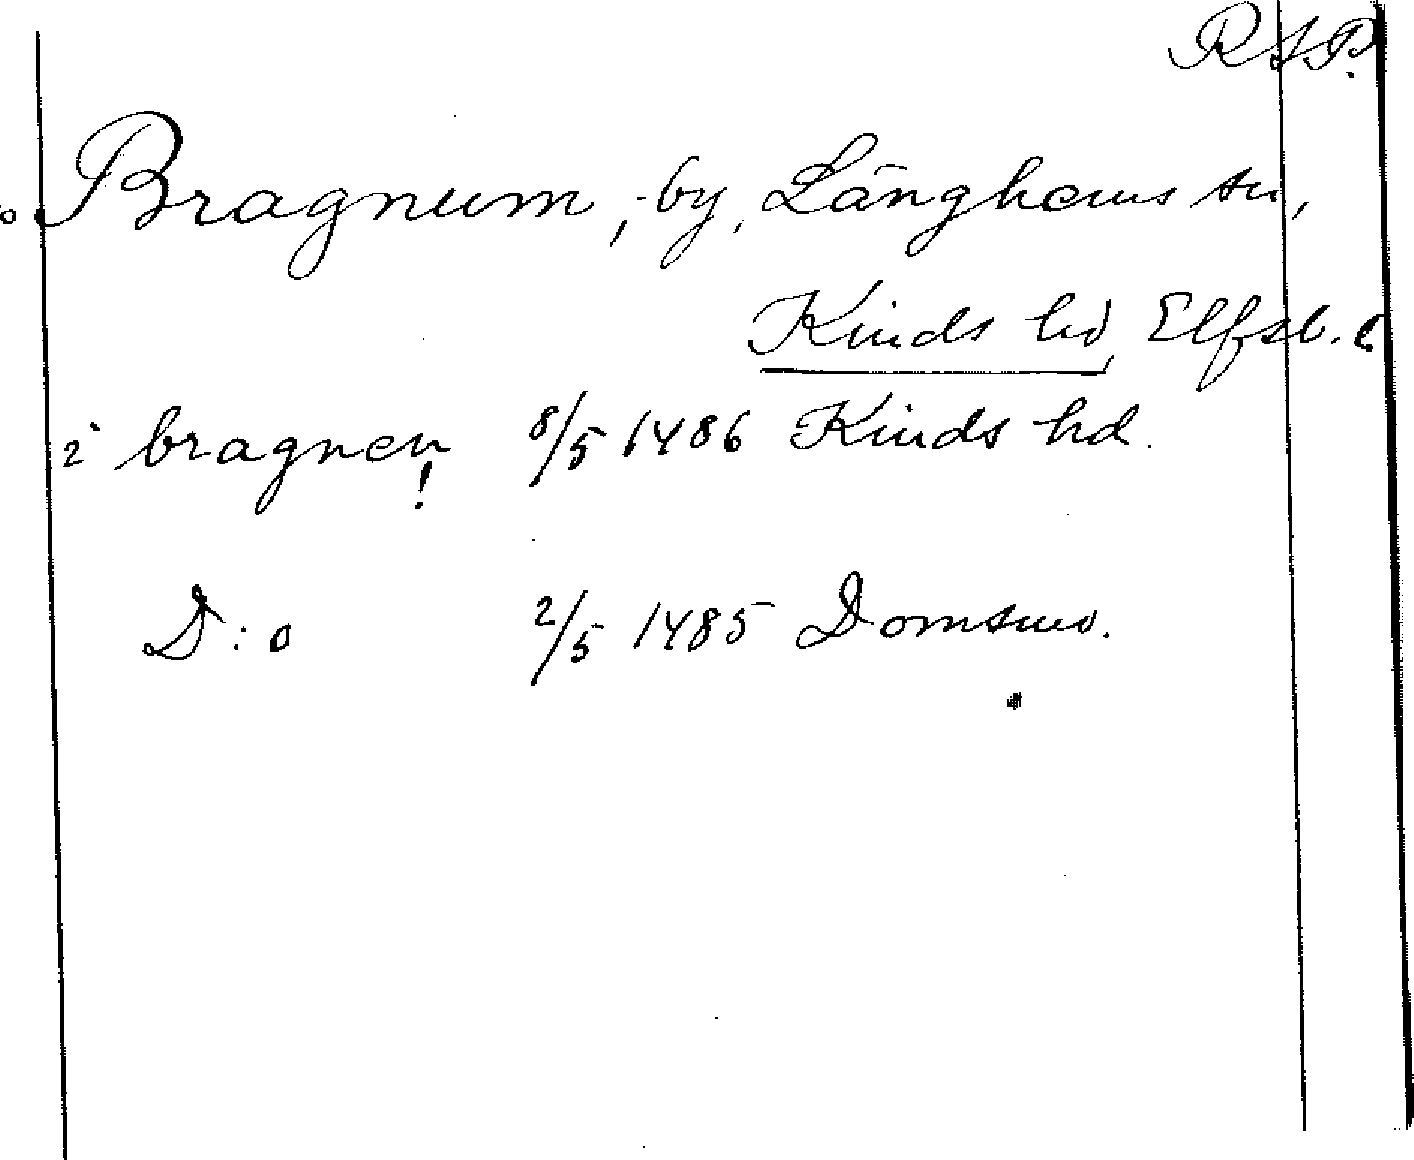 RAP.
Bragnum, by, Länghems sn,
Kinds hd, Elfsb. l.
i bragnen! 8/5 1486 Kinds hd.
D:o 2/5 1485 Domsmo.